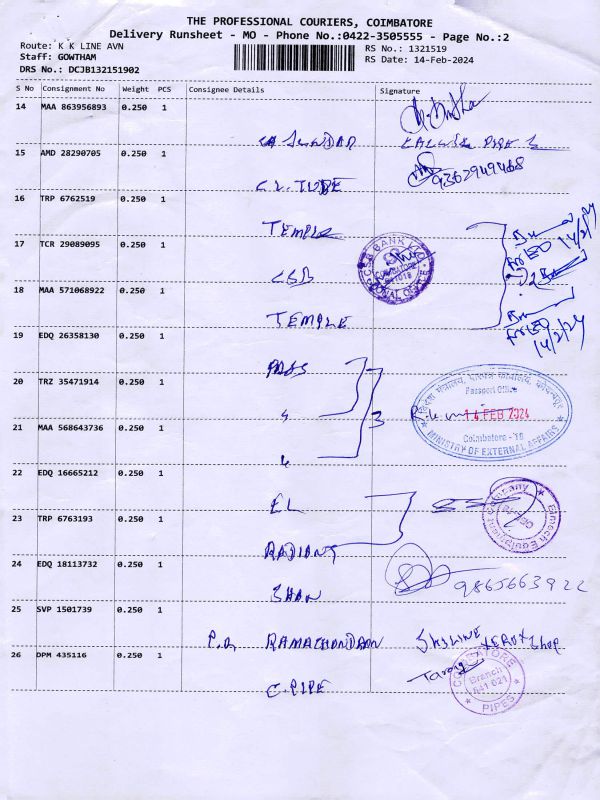 THE PROFESSIONAL COURIERS, COIMBATORE
Delivery Runsheet - MO - Phone No.:0422-3505555 - Page No.:2
Route: K K LINE AVN
RS No.: 1321519
Staff: GOWTHAM
RS Date: 14-Feb-2024
DRS No.: DCJB132151902
S No Consignment No Weight PCS Consignee Details Signature
14 MAA 863956893 0.250 1
15 AMD 28290705 0.250 1
9362949468
C.L. TUBE
16 TRP 6762519 0.250 1
TEMPLE
14/2/24
17 TCR 29089095 0.250 1
CSB BANK LTD
COIMBATORE
ZONAL OFFICE
CSB
18 MAA 571068922 0.250 1
TEMPLE
14/2/24
19 EDQ 26358130 0.250 1
PASS
20 TRZ 35471914 0.250 1
3
Passport Office
14 FEB 2024
Coimbatore - 18
MINISTRY OF EXTERNAL AFFAIRS
21 MAA 568643736 0.250 1
22 EDQ 16665212 0.250 1
EL
Elmech Equipment Company
CBE-18
23 TRP 6763193 0.250 1
RADIANT
24 EDQ 18113732 0.250 1
SHAN
9865663922
25 SVP 1501739 0.250 1
P.O RAMACHANDRAN SKYLINE XEROX Shop
26 DPM 435116 0.250 1
C.PIPE
COIMBATORE
Branch
641 021
PIPES